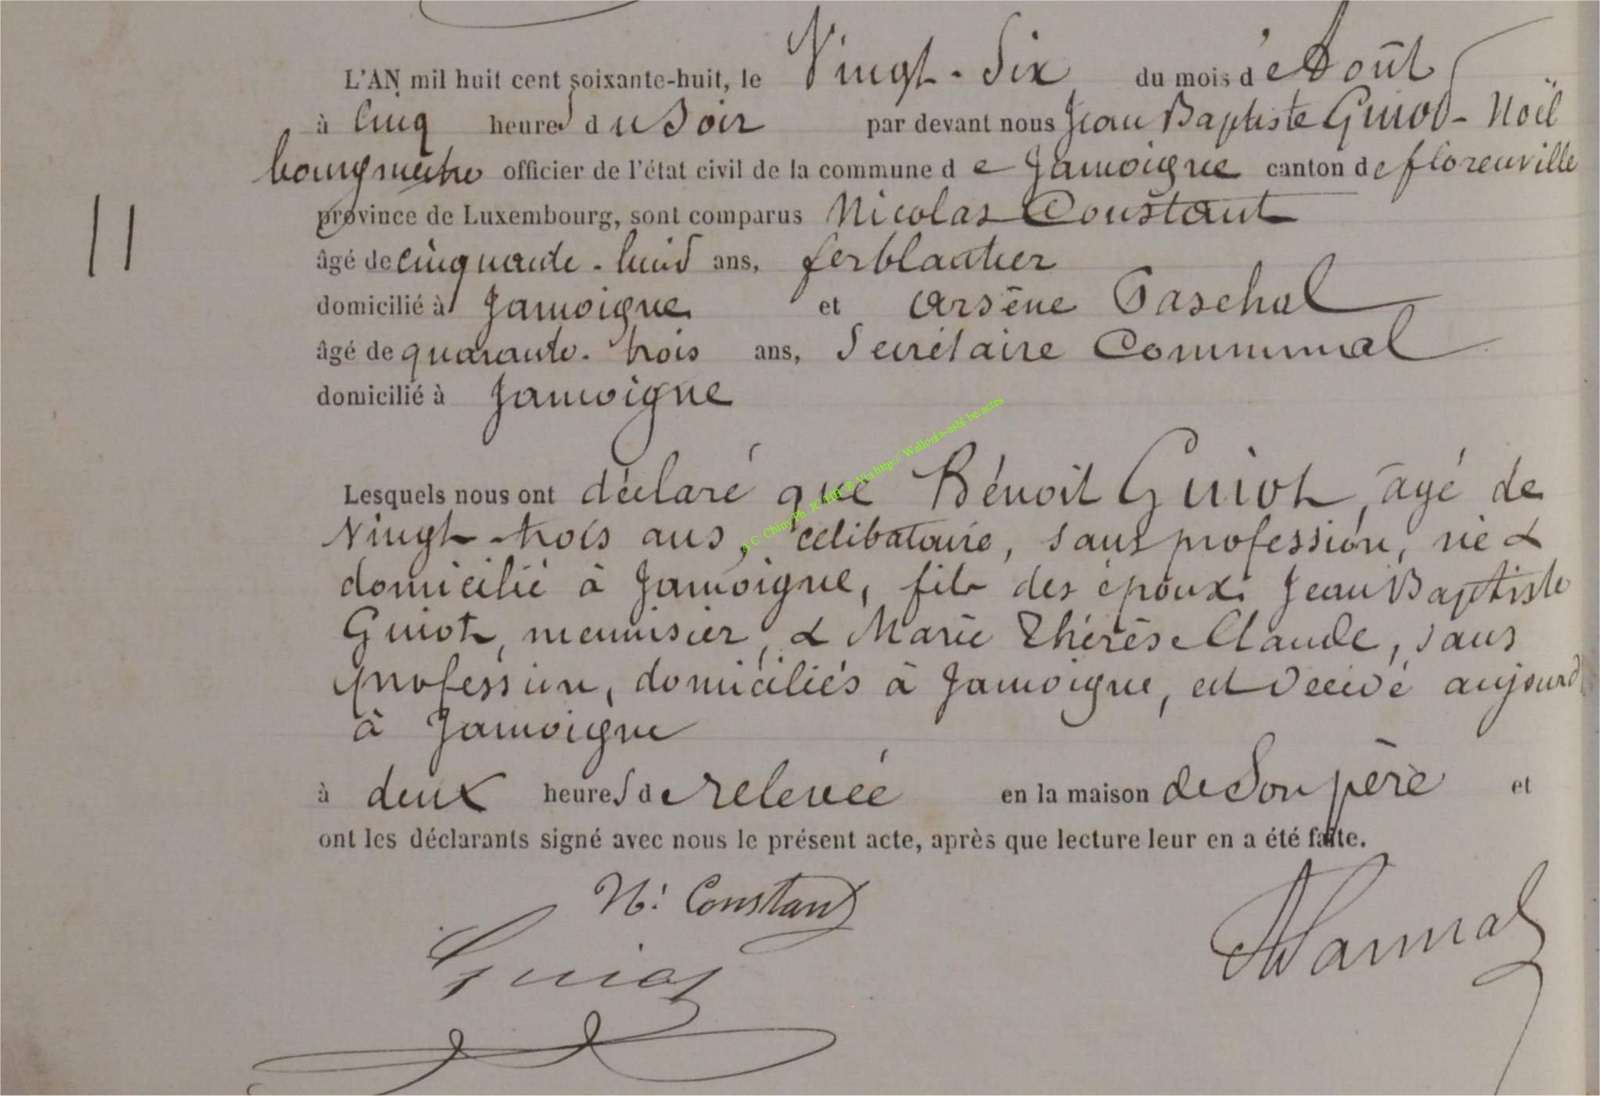 L'AN mil huit cent soixante-huit, le Vingt-Six du mois d'Août
à Cinq heures du Soir par devant nous Jean Baptiste Guiot-Noël
bourgmestre officier de l'état civil de la commune de Jamoigne canton de florenville
province de Luxembourg, sont comparus Nicolas Constant
11
âgé de cinquante-huit ans, ferblantier
domicilié à Jamoigne et Arsène Paschal
âgé de quarante-trois ans, Secrétaire Communal
domicilié à Jamoigne
Lesquels nous ont déclaré que Bénoit Guiot, âgé de
Vingt-trois ans, célibataire, sans profession, né &
domicilié à Jamoigne, fils des époux Jean Baptiste
Guiot, menuisier, & Marie Thérèse Claude, sans
profession, domiciliés à Jamoigne, est décédé aujourd
à Jamoigne
à deux heures de relevée en la maison de Son père et
ont les déclarants signé avec nous le présent acte, après que lecture leur en a été faite.
N. Constant
Guiot